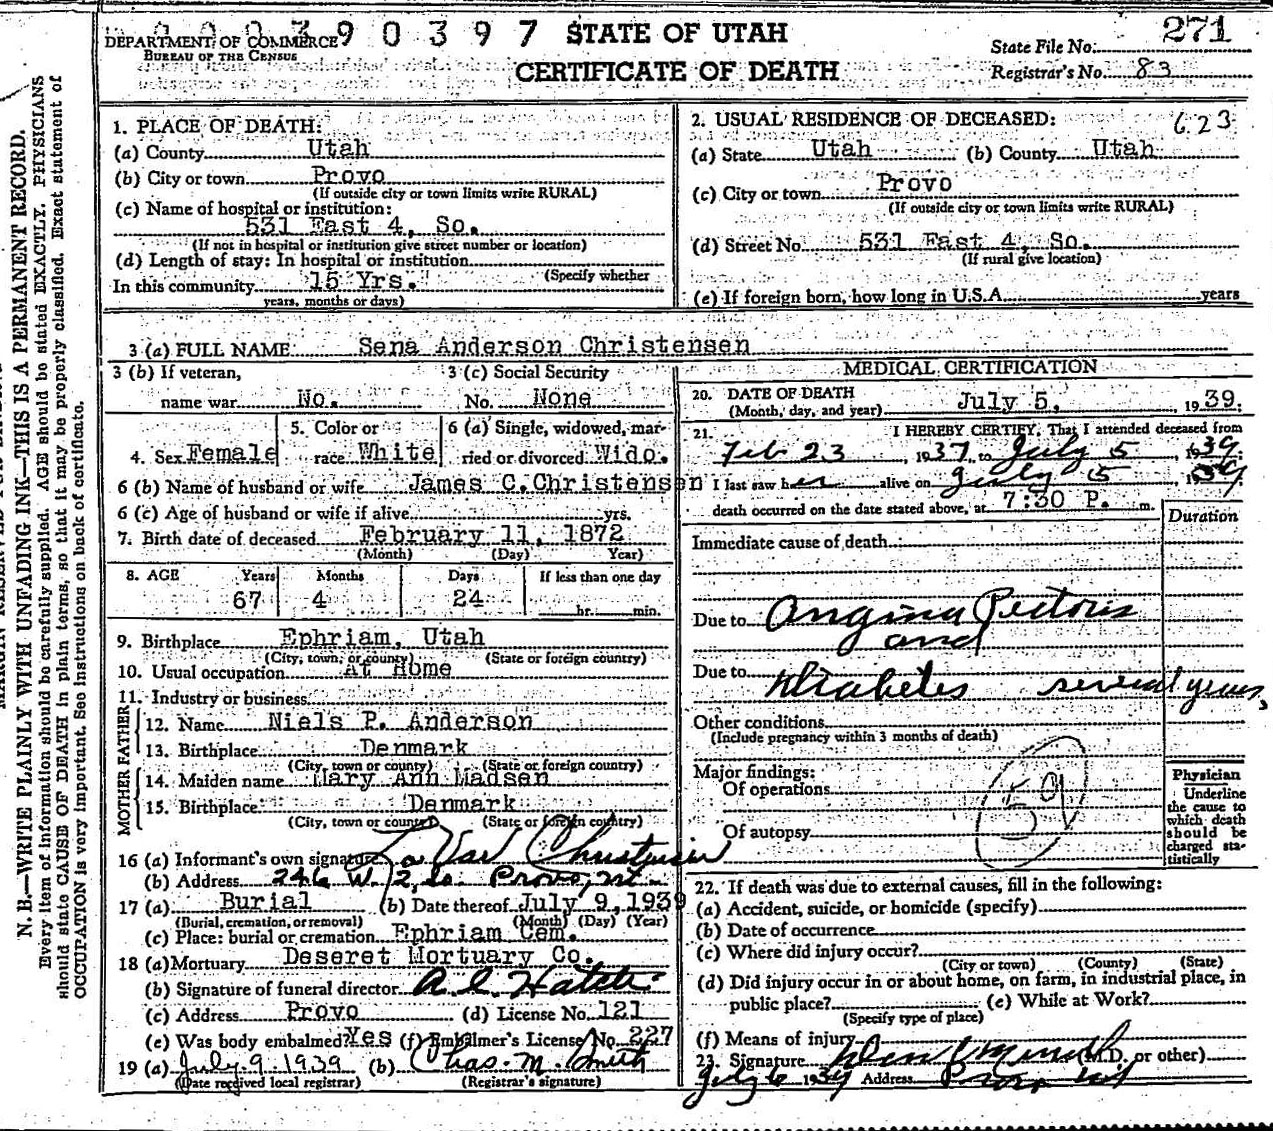 390397 STATE OF UTAH 271
DEPARTMENT OF COMMERCE
BUREAU OF THE CENSUS
State File No.
CERTIFICATE OF DEATH Registrar's No. 83
N. B.—WRITE PLAINLY WITH UNFADING INK—THIS IS A PERMANENT RECORD.
Every item of information should be carefully supplied. AGE should be stated EXACTLY. PHYSICIANS
should state CAUSE OF DEATH in plain terms, so that it may be properly classified. Exact statement of
OCCUPATION is very important. See instructions on back of certificate.
1. PLACE OF DEATH:
(a) County Utah
(b) City or town Provo
(If outside city or town limits write RURAL)
(c) Name of hospital or institution:
531 East 4, So.
(If not in hospital or institution give street number or location)
(d) Length of stay: In hospital or institution
(Specify whether
In this community 15 Yrs.
years, months or days)
2. USUAL RESIDENCE OF DECEASED: 623
(a) State Utah (b) County Utah
(c) City or town Provo
(If outside city or town limits write RURAL)
(d) Street No. 531 East 4, So.
(If rural give location)
(e) If foreign born, how long in U.S.A. years
3 (a) FULL NAME Sena Anderson Christensen
3 (b) If veteran, 3 (c) Social Security
name war No. No. None
4. Sex Female 5. Color or race White 6 (a) Single, widowed, married or divorced Wido.
6 (b) Name of husband or wife James C.Christensen
6 (c) Age of husband or wife if alive yrs.
7. Birth date of deceased February 11, 1872
(Month) (Day) Year)
8. AGE Years Months Days If less than one day
67 4 24 hr. min.
9. Birthplace Ephriam, Utah
(City, town, or county) (State or foreign country)
10. Usual occupation At Home
11. Industry or business
FATHER
12. Name Niels P. Anderson
13. Birthplace Denmark
(City, town or county) (State or foreign country)
MOTHER
14. Maiden name Mary Ann Madsen
15. Birthplace Denmark
(City, town or county) (State or foreign country)
16 (a) Informant's own signature La Var Christensen
(b) Address 246 W. 2, So. Provo, Ut.
17 (a) Burial (b) Date thereof July 9, 1939
(Burial, cremation, or removal) (Month) (Day) (Year)
(c) Place: burial or cremation Ephriam Cem.
18 (a) Mortuary Deseret Mortuary Co.
(b) Signature of funeral director A. C. Hatch
(c) Address Provo (d) License No. 121
(e) Was body embalmed? Yes (f) Embalmer's License No. 227
19 (a) July 9, 1939 (b) Chas. M. Smith
(Date received local registrar) (Registrar's signature)
MEDICAL CERTIFICATION
20. DATE OF DEATH
(Month, day, and year) July 5, 1939.
21. I HEREBY CERTIFY, That I attended deceased from
Feb 23, 1937, to July 5, 1939.
I last saw her alive on July 5, 1939
death occurred on the date stated above, at 7:30 P. m.
Duration
Immediate cause of death
Due to Angina Pectoris
and
Due to Diabetes several years,
Other conditions
(Include pregnancy within 3 months of death)
Major findings:
Of operations
59
Of autopsy
Physician
Underline
the cause to
which death
should be
charged sta-
tistically
22. If death was due to external causes, fill in the following:
(a) Accident, suicide, or homicide (specify)
(b) Date of occurrence
(c) Where did injury occur?
(City or town) (County) (State)
(d) Did injury occur in or about home, on farm, in industrial place, in
public place? (e) While at Work?
(Specify type of place)
(f) Means of injury
23. Signature (M.D. or other)
July 6 1939 Address Provo Ut